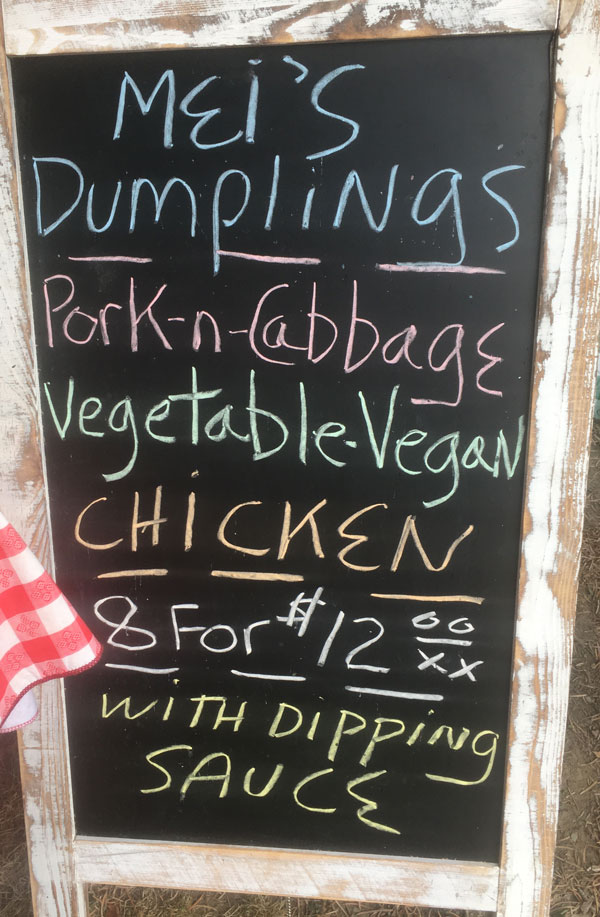 MEi'S
DumpliNgS
Pork-n-Cabbage
Vegetable-Vegan
CHiCKEN
8 For $12 00/xx
WiTH DippiNg
SAUCE